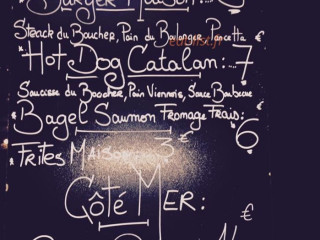 Burger Maison:
Steack du Boucher, Pain du Boulanger, Pancetta €
* Hot Dog Catalan: 7
Saucisse du Boucher, Pain Viennois, Sauce Barbecue €
* Bagel Saumon Fromage Frais: 6
* Frites Maison 3 €
Côté Mer:
€